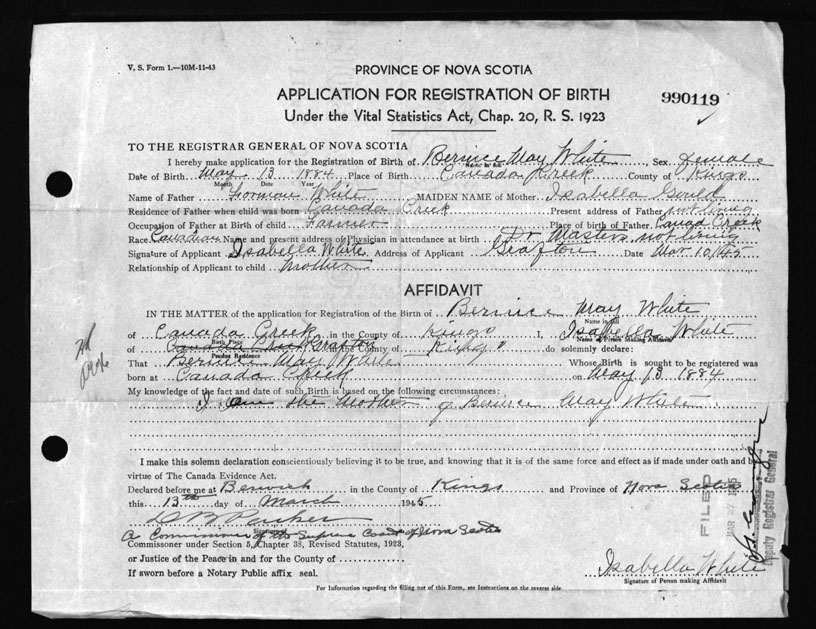 V. S. Form 1.—10M-11-43
PROVINCE OF NOVA SCOTIA
APPLICATION FOR REGISTRATION OF BIRTH
990119
Under the Vital Statistics Act, Chap. 20, R. S. 1923
TO THE REGISTRAR GENERAL OF NOVA SCOTIA
I hereby make application for the Registration of Birth of Bernice May White, Sex Female
Name in full
Date of Birth May 13 1884 Place of Birth Canada Creek County of Kings
Month Date Year
Name of Father White MAIDEN NAME of Mother Isabella Gould
Residence of Father when child was born Canada Creek Present address of Father not living
Occupation of Father at Birth of child Farmer Place of birth of Father Canada Creek
Race Canadian Name and present address of Physician in attendance at birth Dr Masters not living
Signature of Applicant Isabella White Address of Applicant Grafton Date Mar 10/45
Relationship of Applicant to child Mother
AFFIDAVIT
IN THE MATTER of the application for Registration of the Birth of Bernice May White
Name in full
of Canada Creek in the County of Kings I, Isabella White
Birth Place Name of Person Making Affidavit
of Grafton in the County of Kings do solemnly declare:
Present Residence
That Bernice May White Whose Birth is sought to be registered was
born at Canada Creek on May 13 1884
My knowledge of the fact and date of such Birth is based on the following circumstances:
I am the Mother of Bernice May White
I make this solemn declaration conscientiously believing it to be true, and knowing that it is of the same force and effect as if made under oath and by
virtue of The Canada Evidence Act.
Declared before me at Berwick in the County of Kings and Province of Nova Scotia
this 13th day of March 1945
A Commissioner of the Supreme Court of Nova Scotia
Commissioner under Section 5, Chapter 38, Revised Statutes, 1923,
or Justice of the Peace in and for the County of
If sworn before a Notary Public affix seal.
Isabella White
Signature of Person making Affidavit
For Information regarding the filling out of this Form, see Instructions on the reverse side
FILED
MAR 27 1945
Deputy Registrar General